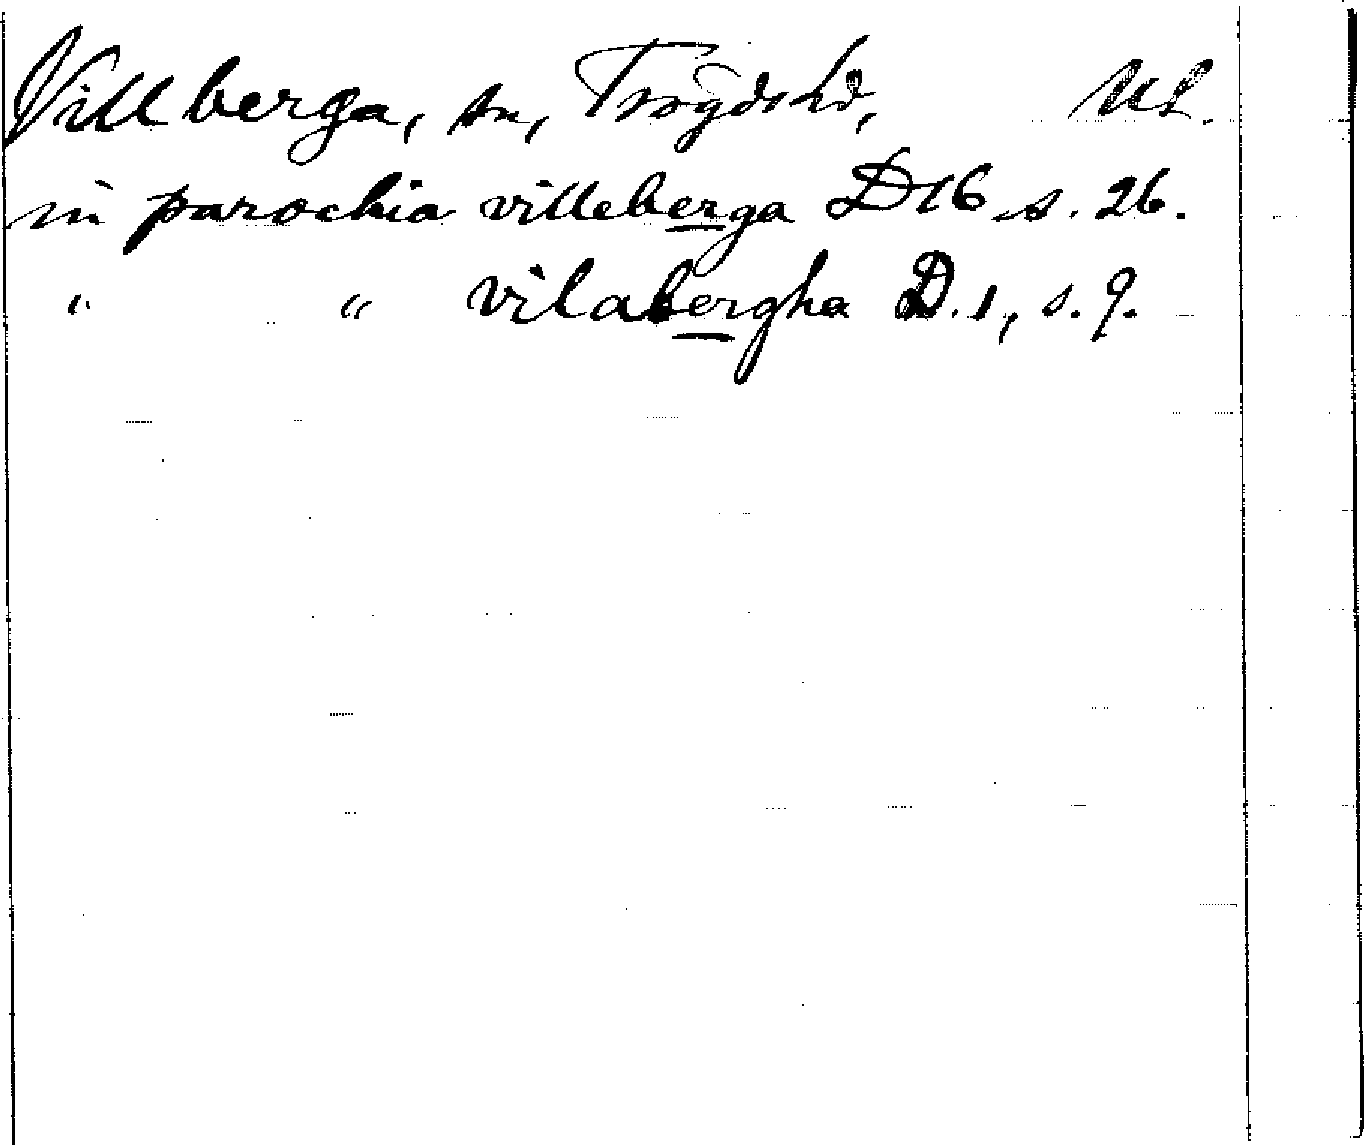 Villberga, sn, Trögds hd, Upl.
in parochia villeberga D16 s. 26.
" " vilabergha D. 1, s. 9.